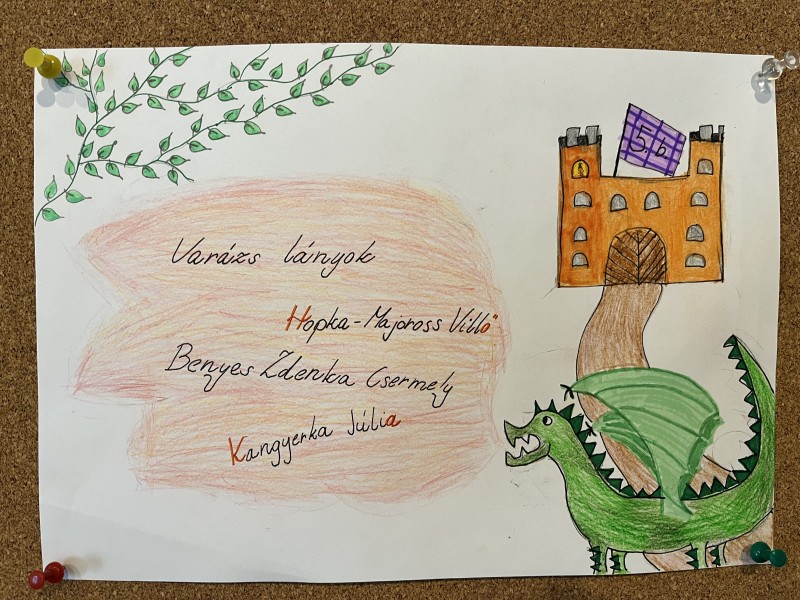 5.b
Varázs lányok
Hopka-Majoross Villő
Benyes Zdenka Csermely
Kangyerka Júlia